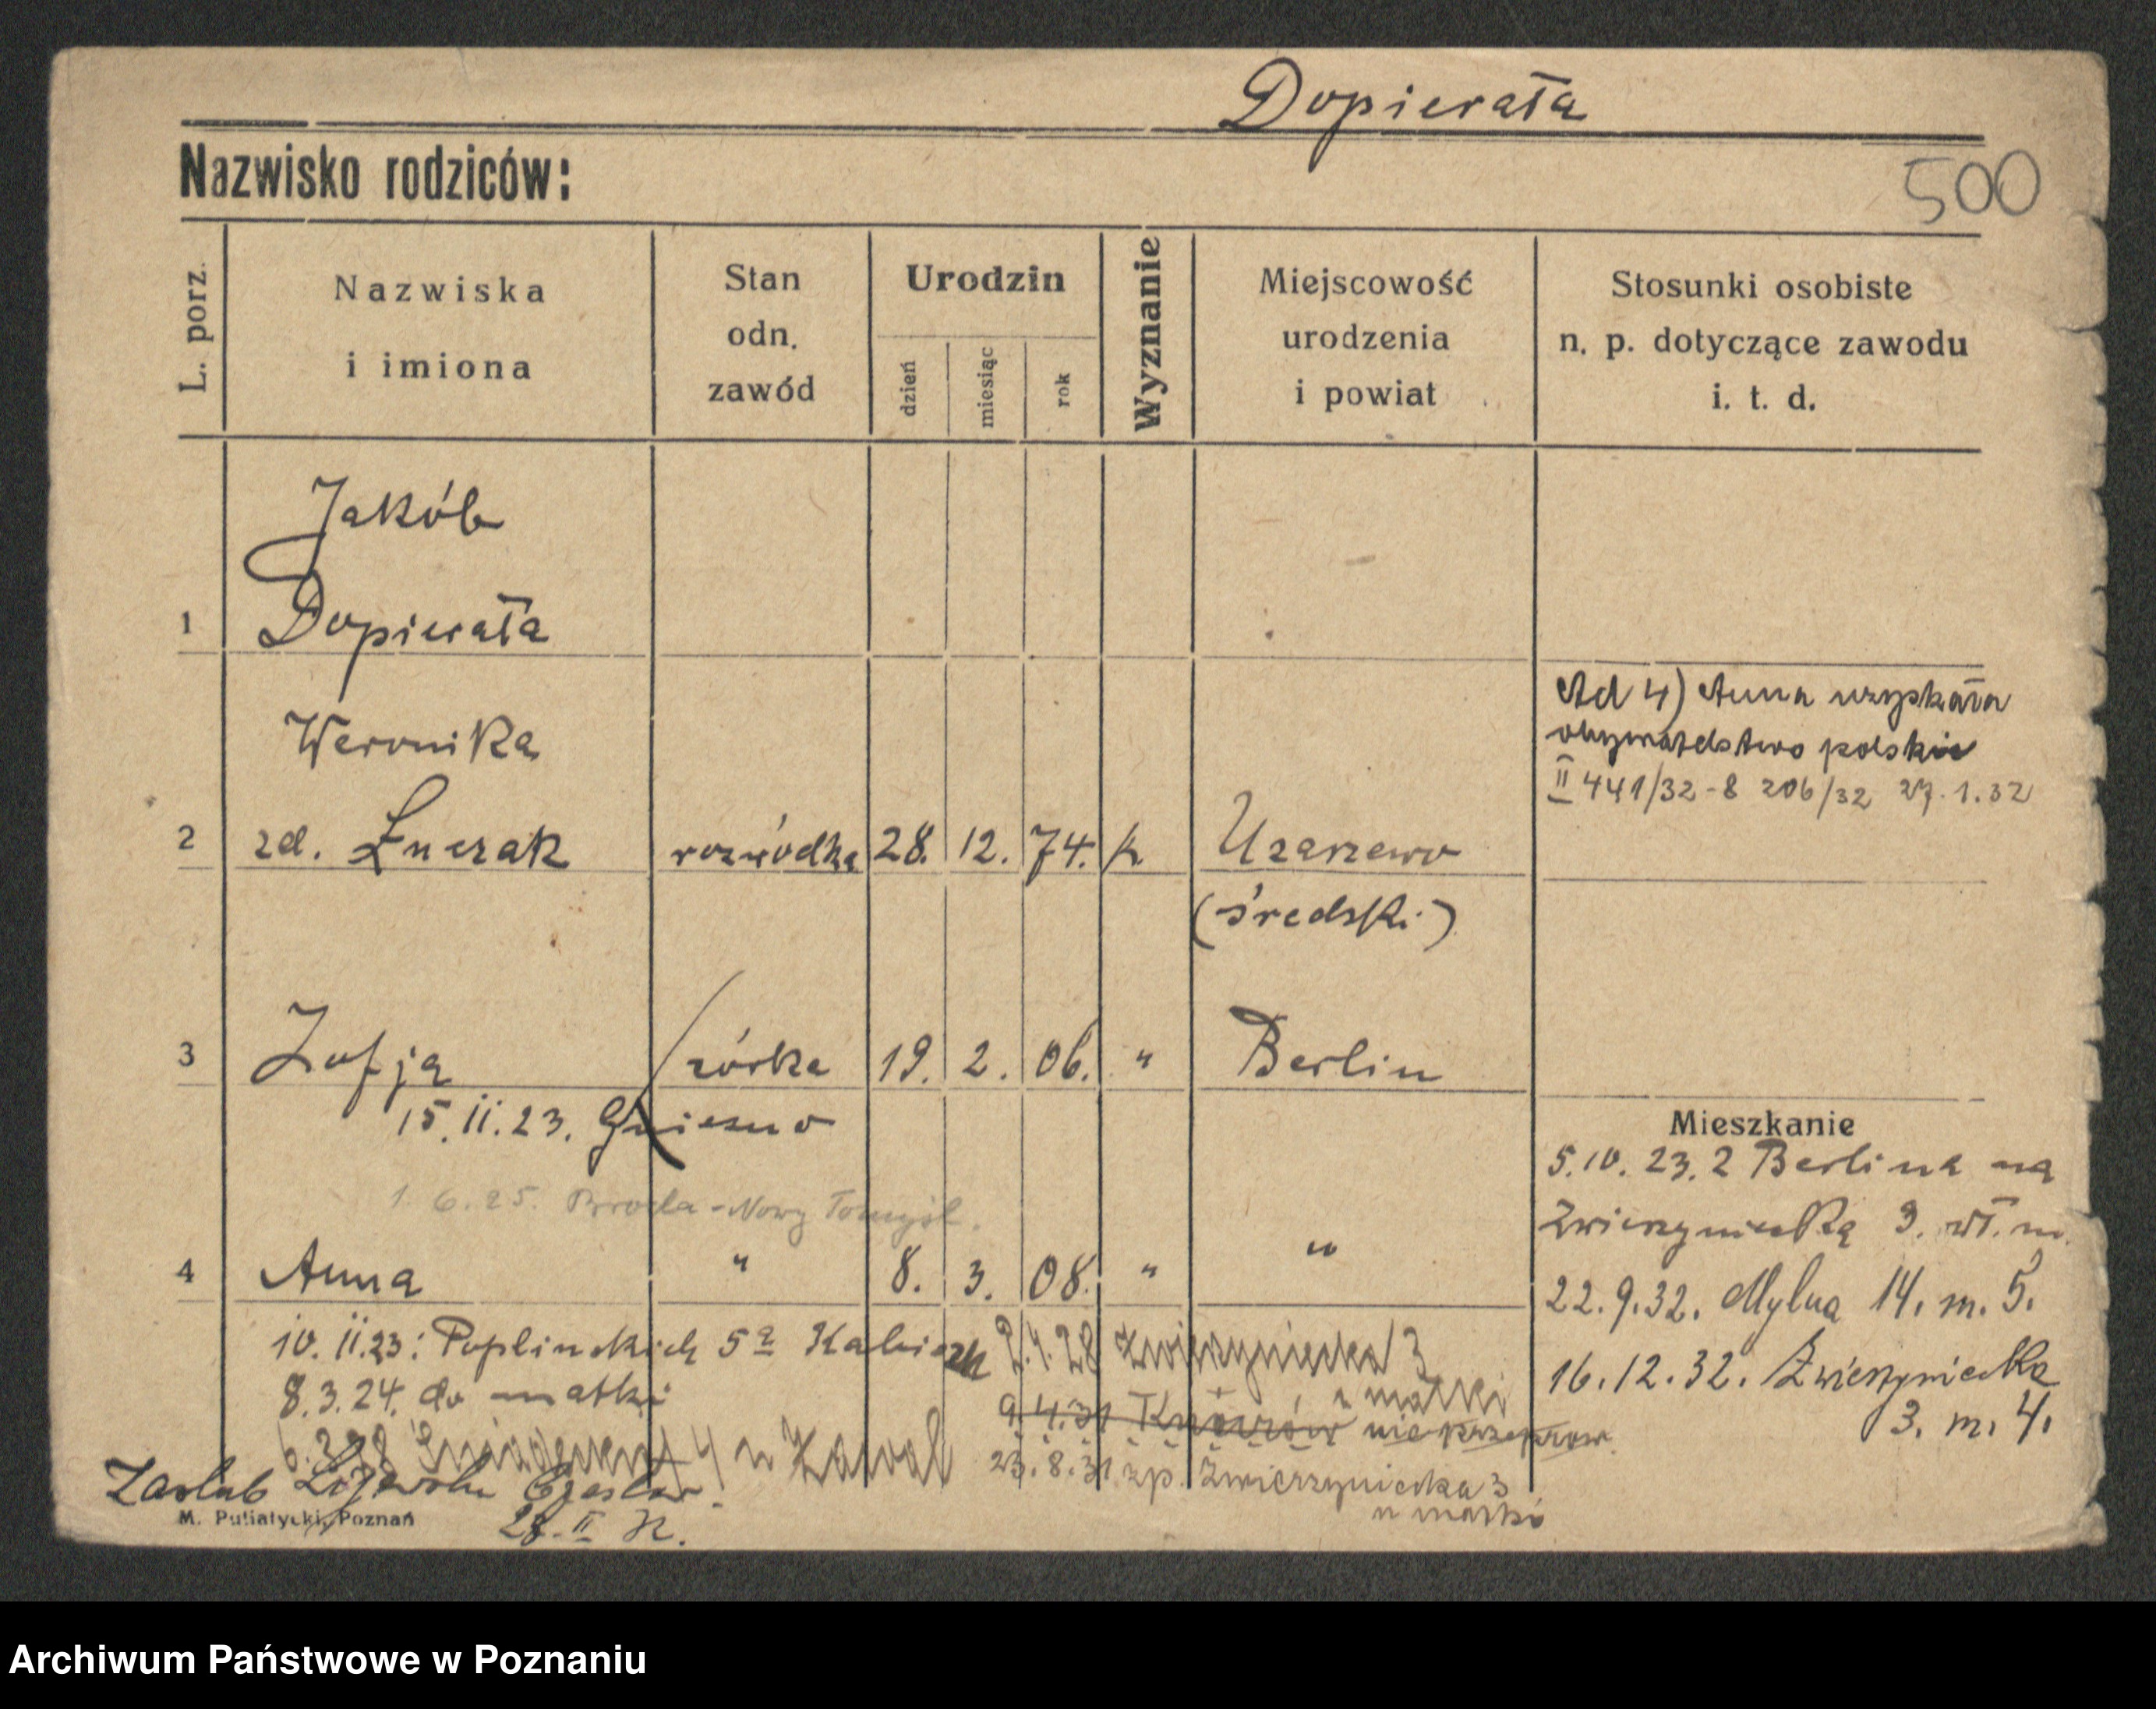 Dopierała
Nazwisko rodziców:
500
L. porz.
Nazwiska
i imiona
Stan
odn.
zawód
Urodzin
dzień
miesiąc
rok
Wyznanie
Miejscowość
urodzenia
i powiat
Stosunki osobiste
n. p. dotyczące zawodu
i. t. d.
Jakób
1 Dopierała
Weronika
2 zd. Łuczak rozwódka 28. 12. 74. k. Uzarzewo
(średski)
Ad 4) Anna uzyskała
obywatelstwo polskie
II 441/32-8 206/32 27.1.32
3 Zofja córka 19. 2. 06. " Berlin
15.11.23. Gniezno
1.6.25. -Nowy Tomyśl.
4 Anna " 8. 3. 08. " "
Mieszkanie
5.10.23. z Berlina na
Zwierzyniecką 3. wł. m.
22.9.32. Mylna 14. m. 5.
16.12.32. Zwierzyniecka
3. m. 4.
10.11.23: Poplinskich 5a
8.3.24. do matki
2.4.28 Zwierzyniecka 3
u matki
9.4.31 nie przeprow.
23.8.31 zp. Zwierzyniecka 3
u matki
Zaślub Czesław.
M. Putiatycki, Poznań